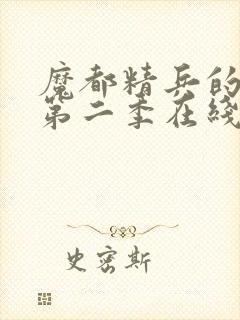 魔都精兵的
第二季在线
史密斯